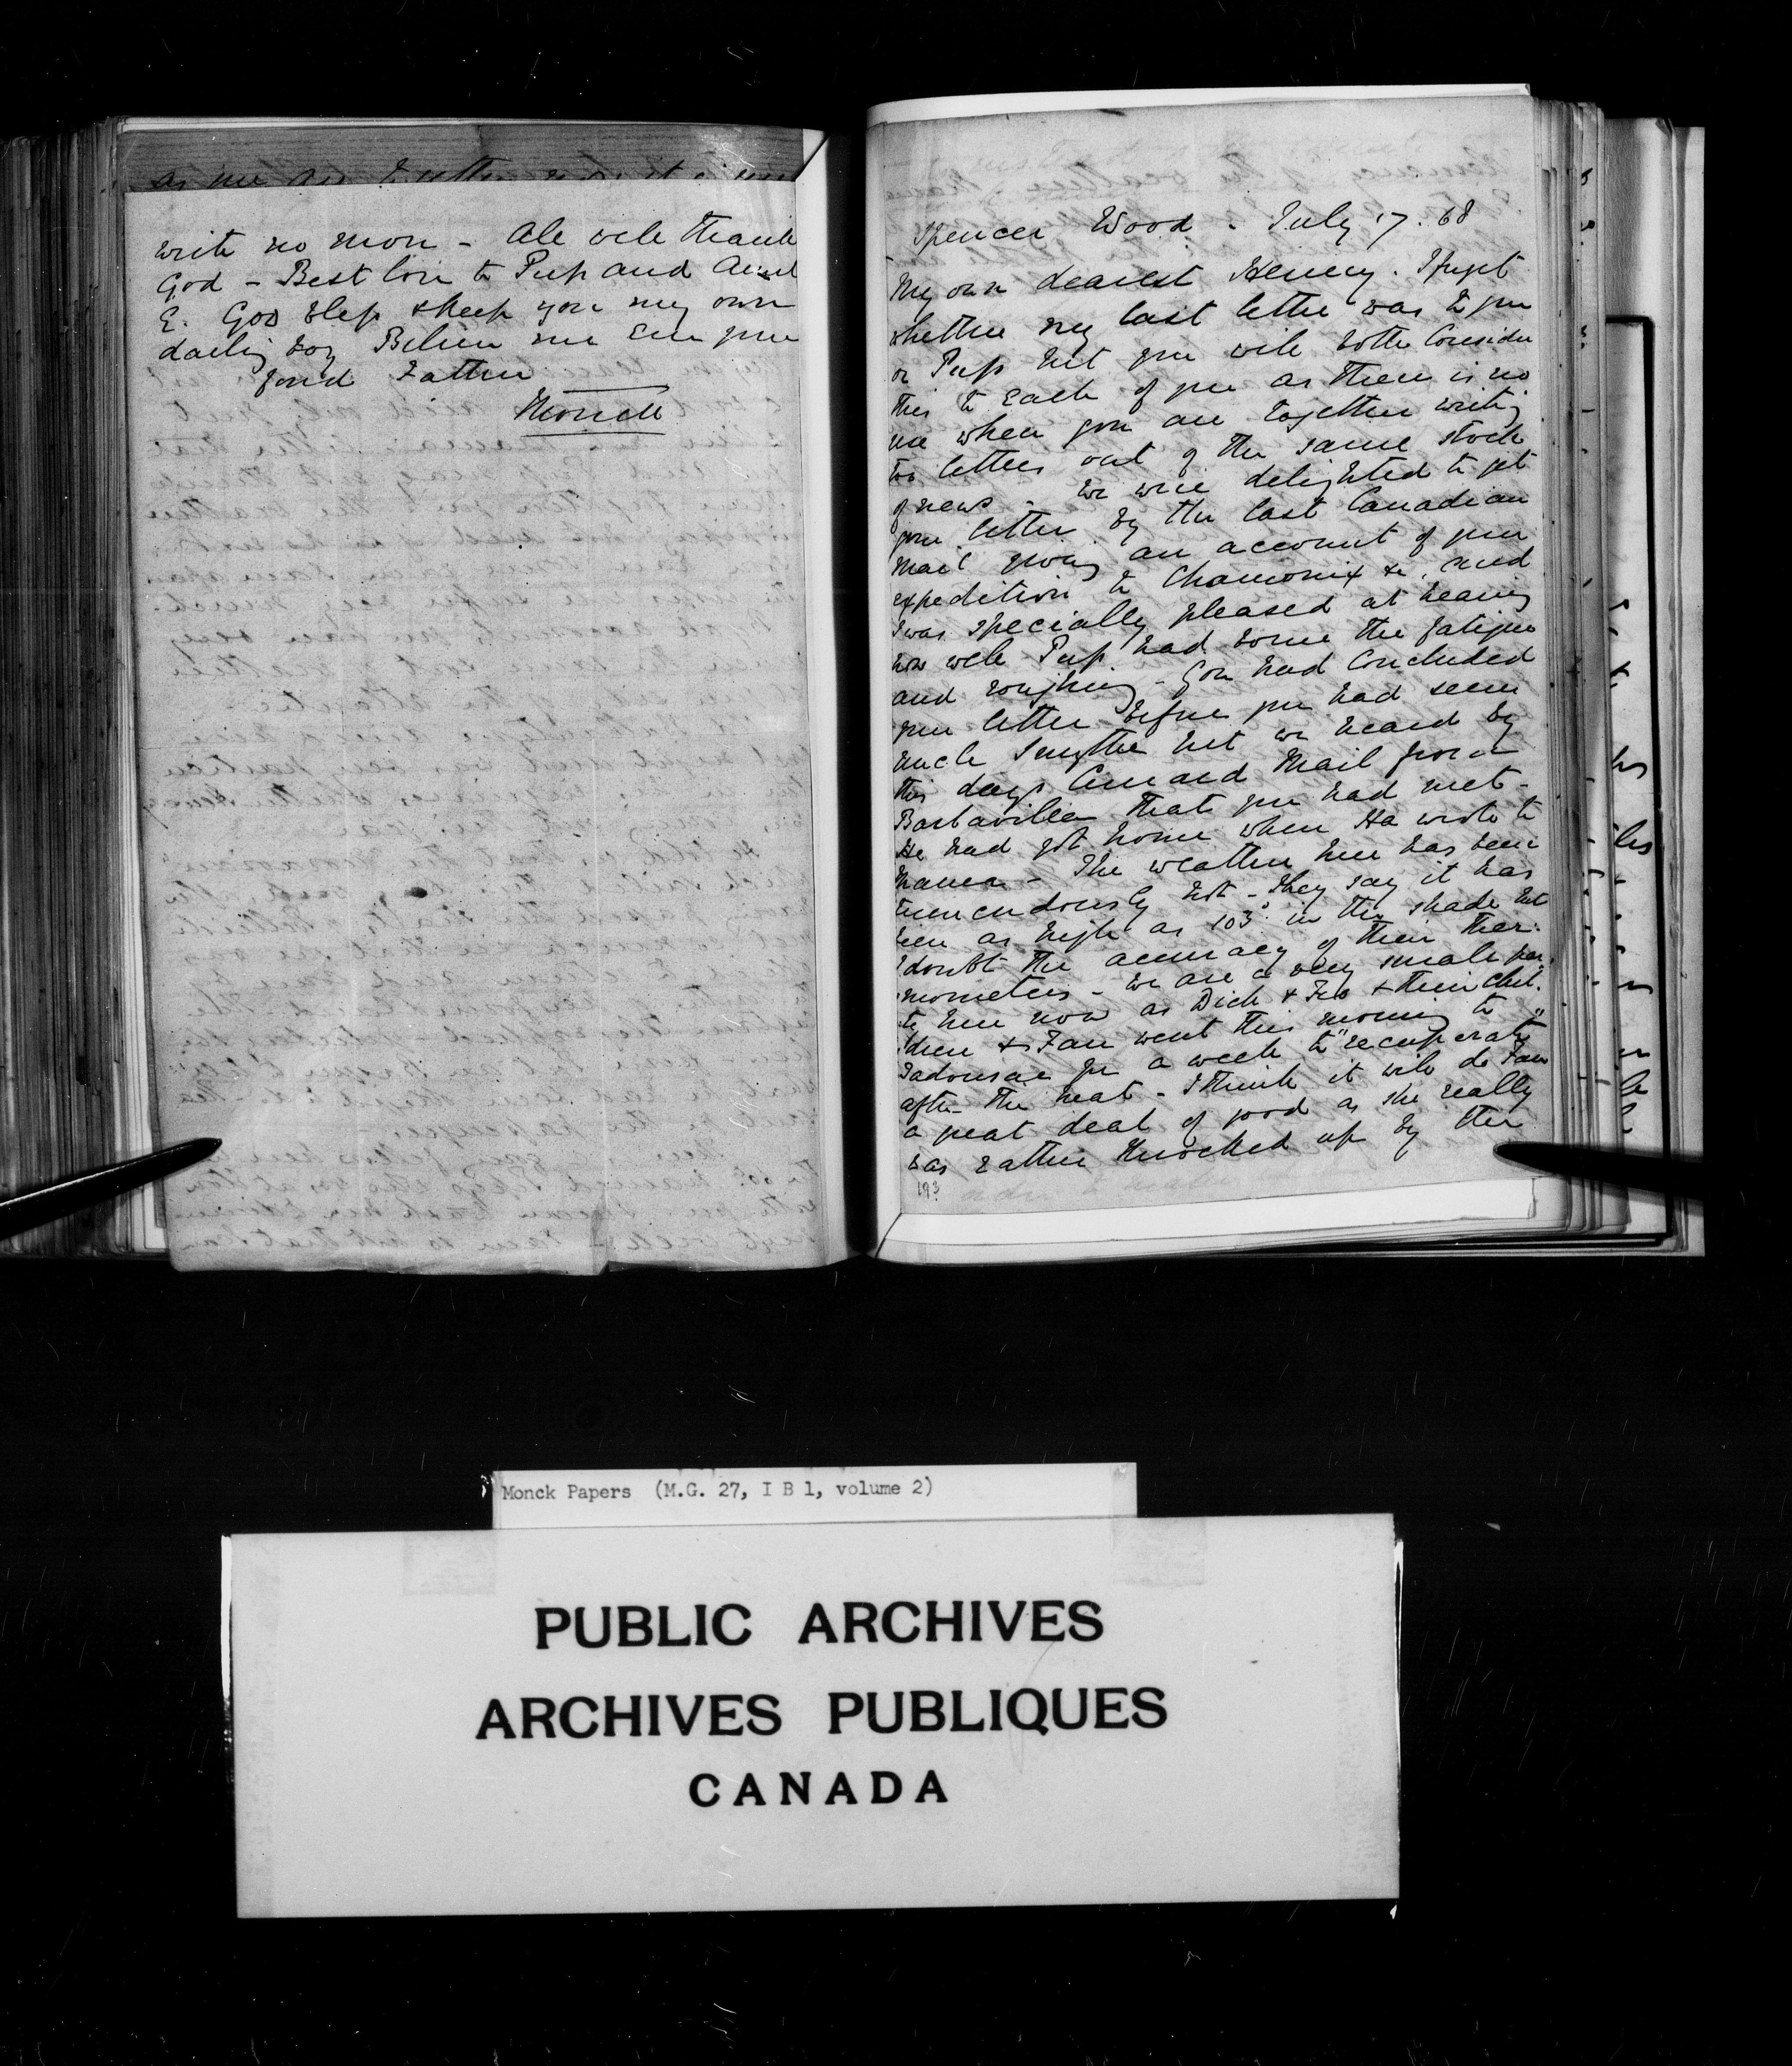 write no more - All well thank
God - Best love to Pup and Aunt
E. God bless & keep you my own
darling boy Believe me Ever your
fond Father
Monck
Spencer Wood. July 17. 68
My own dearest Henry. I forget
whether my last letter was to you
or Pup but you will both consider
this to each of you as there is no
use when you are together writing
two letters out of the same stock
of news - We were delighted to get
your letter by the last Canadian
Mail giving an account of your
expedition to Chamonix &c, and
I was specially pleased at hearing
how well Pup had borne the fatigue
and roughing - You had concluded
your letter before you had seen
Uncle Smythe but we heard by
this days Cunard Mail from
Barbavilla that you had met -
He had got home when Ha wrote to
Mama - The weather here has been
tremendously hot - They say it has
been as high as 103° in the shade but
I doubt the accuracy of their ther-
mometers - We are a very small par-
ty here now as Dick & Feo & their chil-
dren & Fan went this morning to
Tadousac for a week to "recuperate"
after the heat - I think it will do Fan
a great deal of good as she really
was rather knocked up by the
193
Monck Papers (M.G. 27, I B 1, volume 2)
PUBLIC ARCHIVES
ARCHIVES PUBLIQUES
CANADA